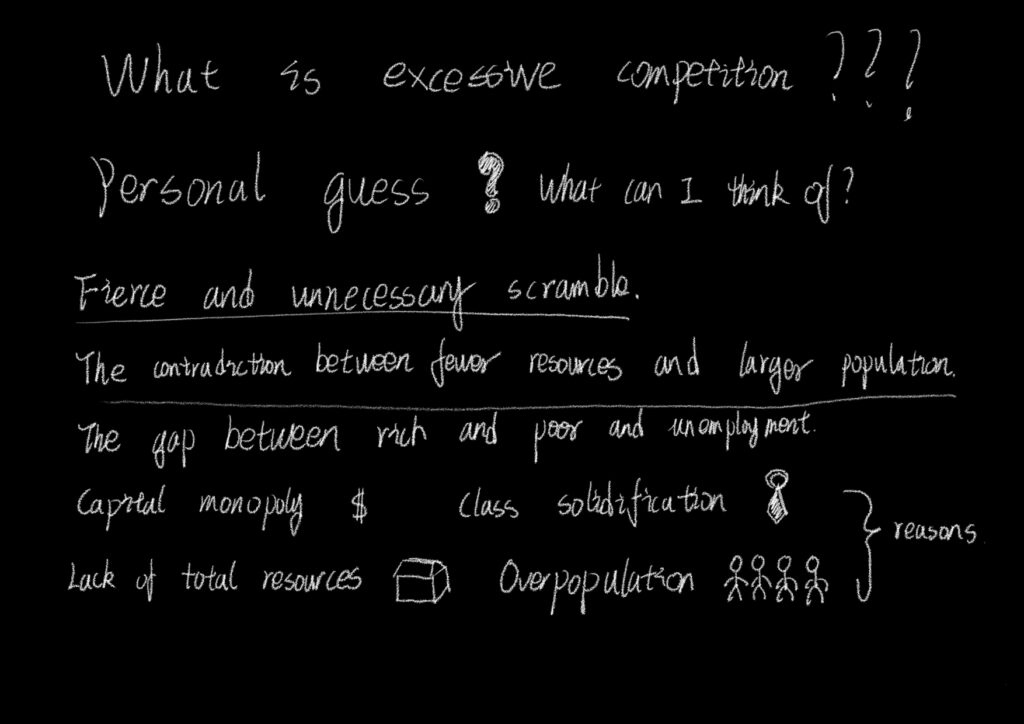 What is excessive competition ???
Personal guess ? What can I think of?
Fierce and unnecessary scramble.
The contradiction between fewer resources and larger population.
The gap between rich and poor and unemployment.
Capital monopoly $ Class solidification
reasons
Lack of total resources Overpopulation